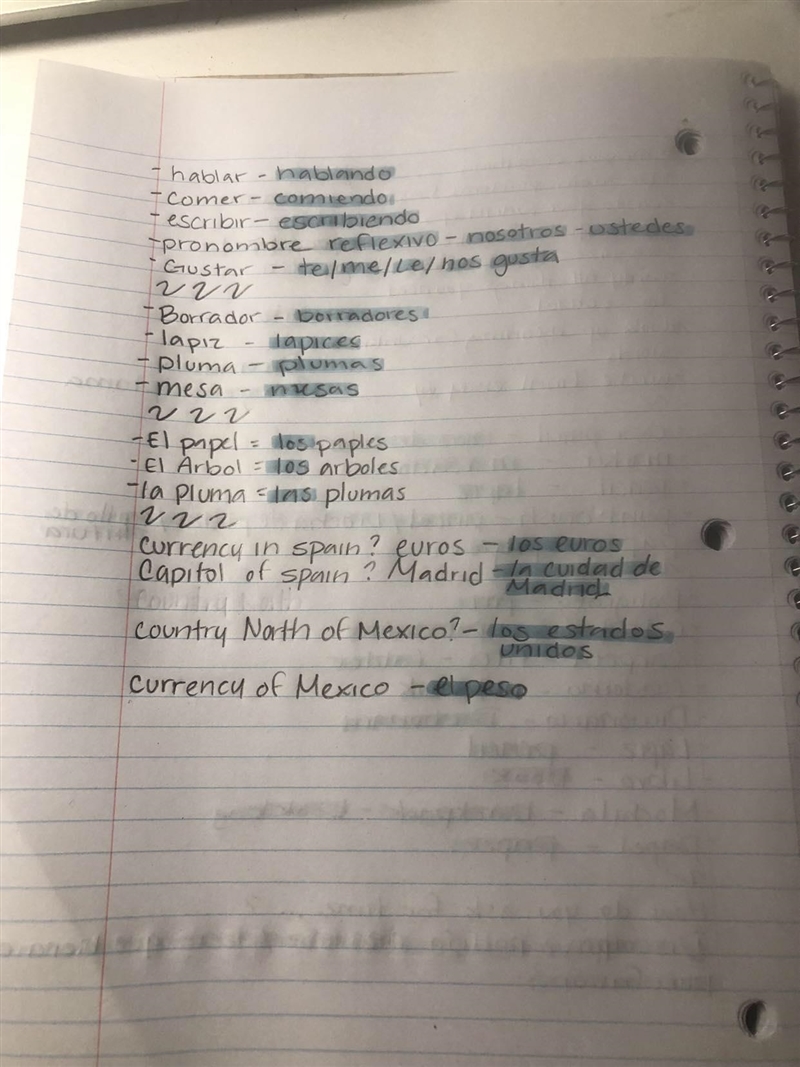 - hablar - hablando
- comer - comiendo
- escribir - escribiendo
- pronombre reflexivo - nosotros - ustedes
- Gustar - te/me/le/nos gusta
- Borrador - borradores
- lapiz - lapices
- pluma - plumas
- mesa - mesas
- El papel = los paples
- El Arbol = los arboles
- la pluma = las plumas
currency in spain? euros - los euros
Capitol of spain? Madrid - la cuidad de
Madrid
country North of Mexico? - los estados
unidos
currency of Mexico - el peso